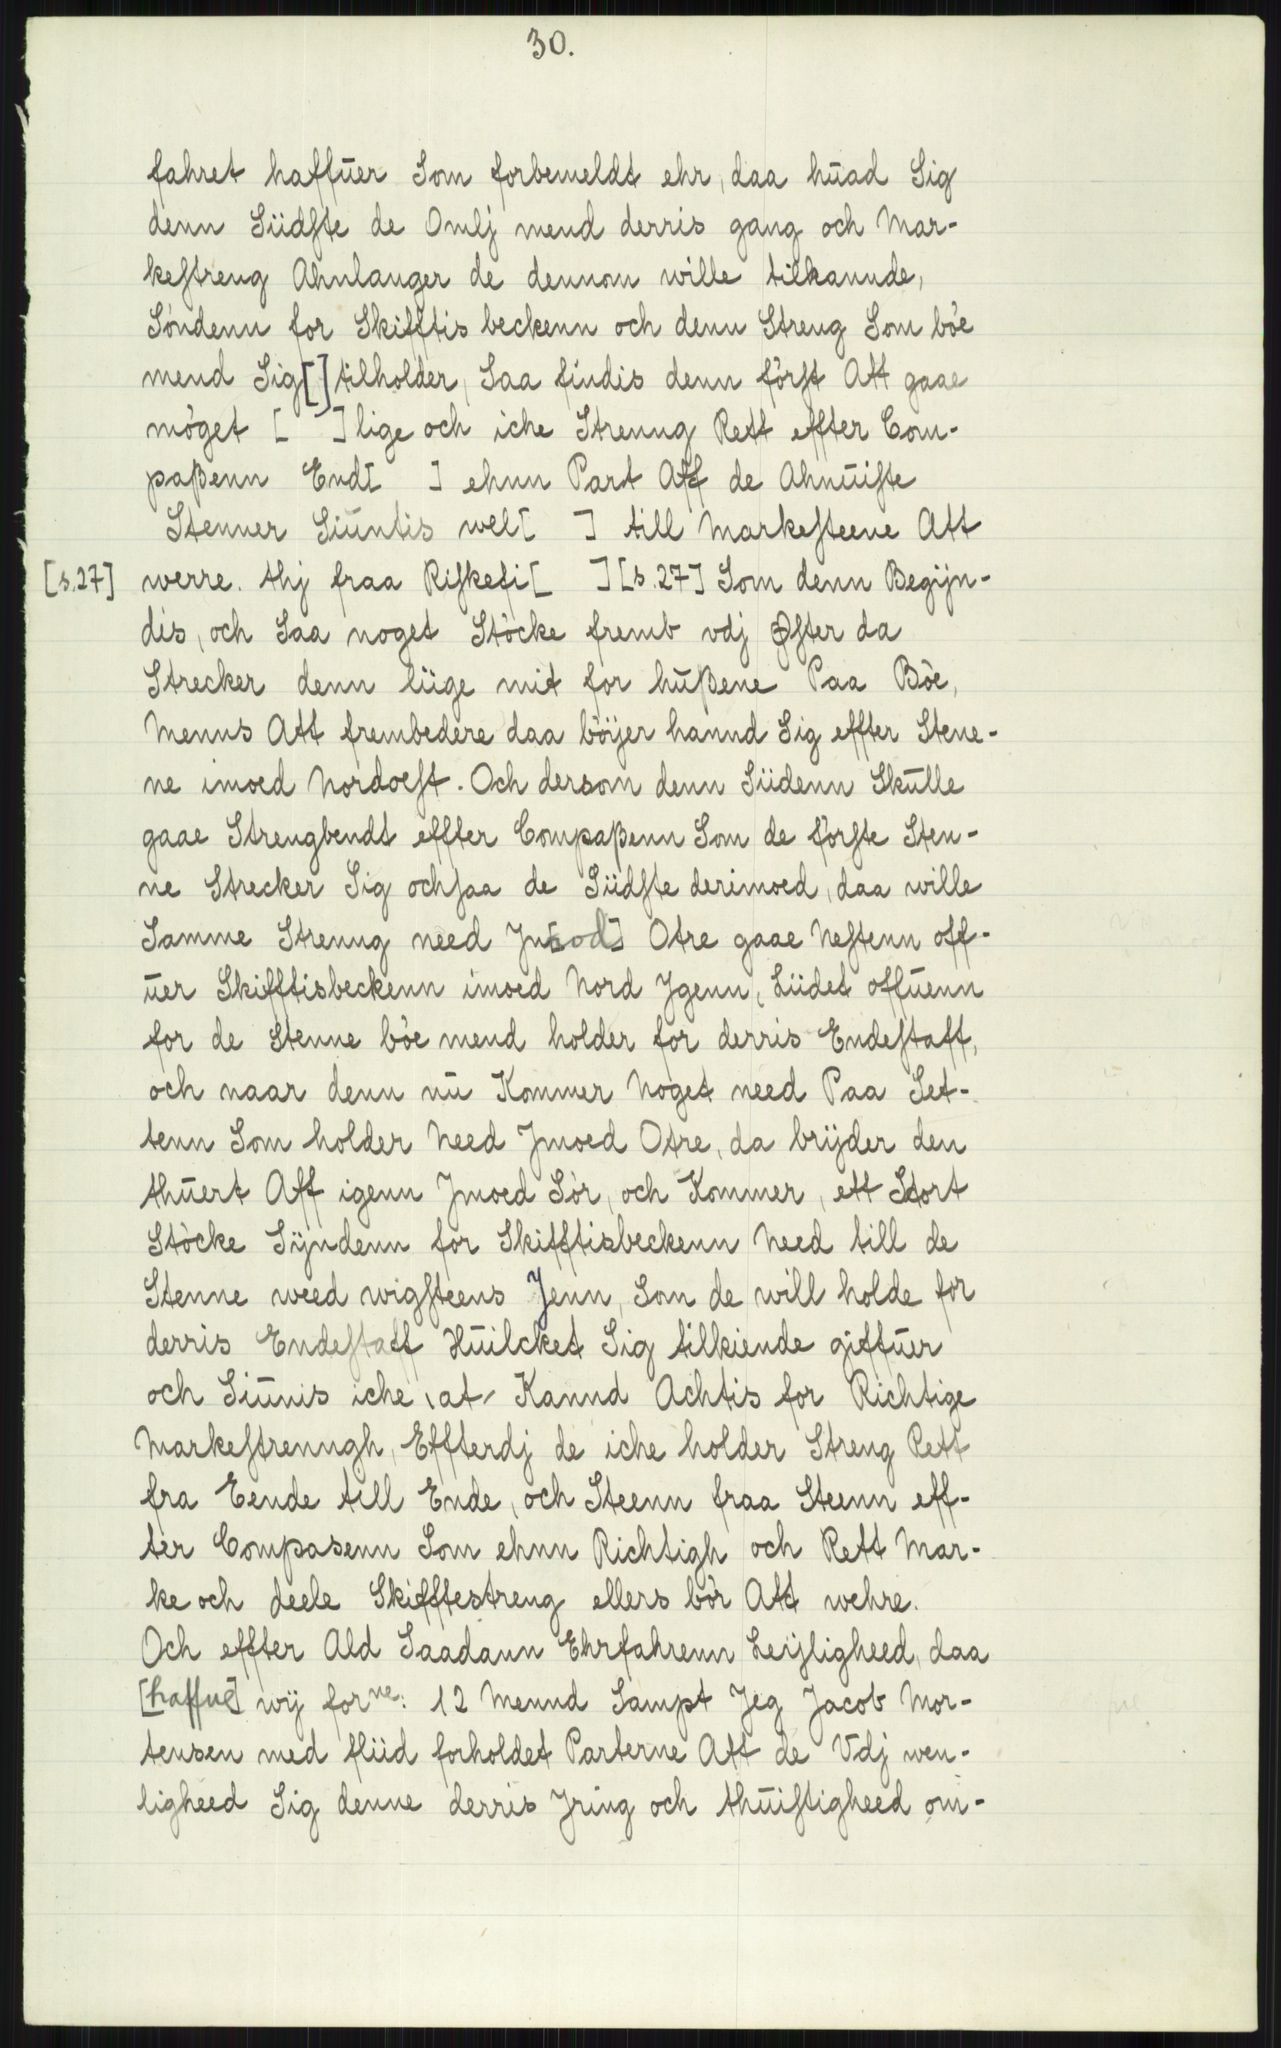 30.
fahret haffuer Som forbemeldt ehr, daa huad Sig
denn Südste de Omlj mend derris gang och Mar-
kestreng Ahnlanger de dennom wille tilkannde,
Söndenn for Skifftis beckenn och denn Streng Som böe
mend Sig[ ] tilholder, Saa findis denn först Att gaae
möget [ ] lige och iche Strenng Rett effter Com-
paßenn End[ ] ehnn Part Aff de Ahnuiste
Stenner Siuntis wel[ ] till Markesteene Att
[s.27] werre. thj fraa Risketi[ ] [s.27] Som denn Begijn-
dis, och Saa noget Stöcke fremb vdj Øster da
Strecker denn lüge mit for hußene Paa Böe,
Menns Att frembedere daa böÿer hannd Sig effter Stene-
ne imoed Nordoest. Och dersom denn Südenn Skulle
gaae Strengbendt effter Compaßenn Som de förste Sten-
ne Strecker Sig ochsaa de Südste derimoed, daa wille
Samme Strenng need Jm[od] Otre gaae Nestenn off-
uer Skifftisbeckenn imoed Nord Jgenn, Lüdet offuenn
for de Stenne böe mend holder for derris Endestaff,
och naar denn nu Kommer Noget need Paa Set-
tenn Som holder Need Jmoed Otre, da brÿder den
thuert Aff igenn Jmoed Sör, och Kommer, ett Stort
Stöcke Sÿndenn for Skifftisbeckenn Need till de
Stenne weed wigsteens Jenn, Som de will holde for
derris Endestaff Huilcket Sig tilkiende giffuer
och Siunis iche, at, Kannd Achtis for Richtige
Markestrenngh, Effterdj de iche holder Streng Rett
fra Eende till Ende, och Steenn fraa Steenn eff-
ter Compasenn Som ehnn Richtigh och Rett Mar-
ke och deele Skifftestreng ellers bör Att wehre.
Och effter Ald Saadann Ehrfahrenn Leÿligheed, daa
[haffue] wÿ forne: 12 Mennd Sampt Jeg Jacob Mor-
tensen med fliid forholdet Parterne Att de Vdj wen-
ligheed Sig denne derris Jring och thuistigheed om-